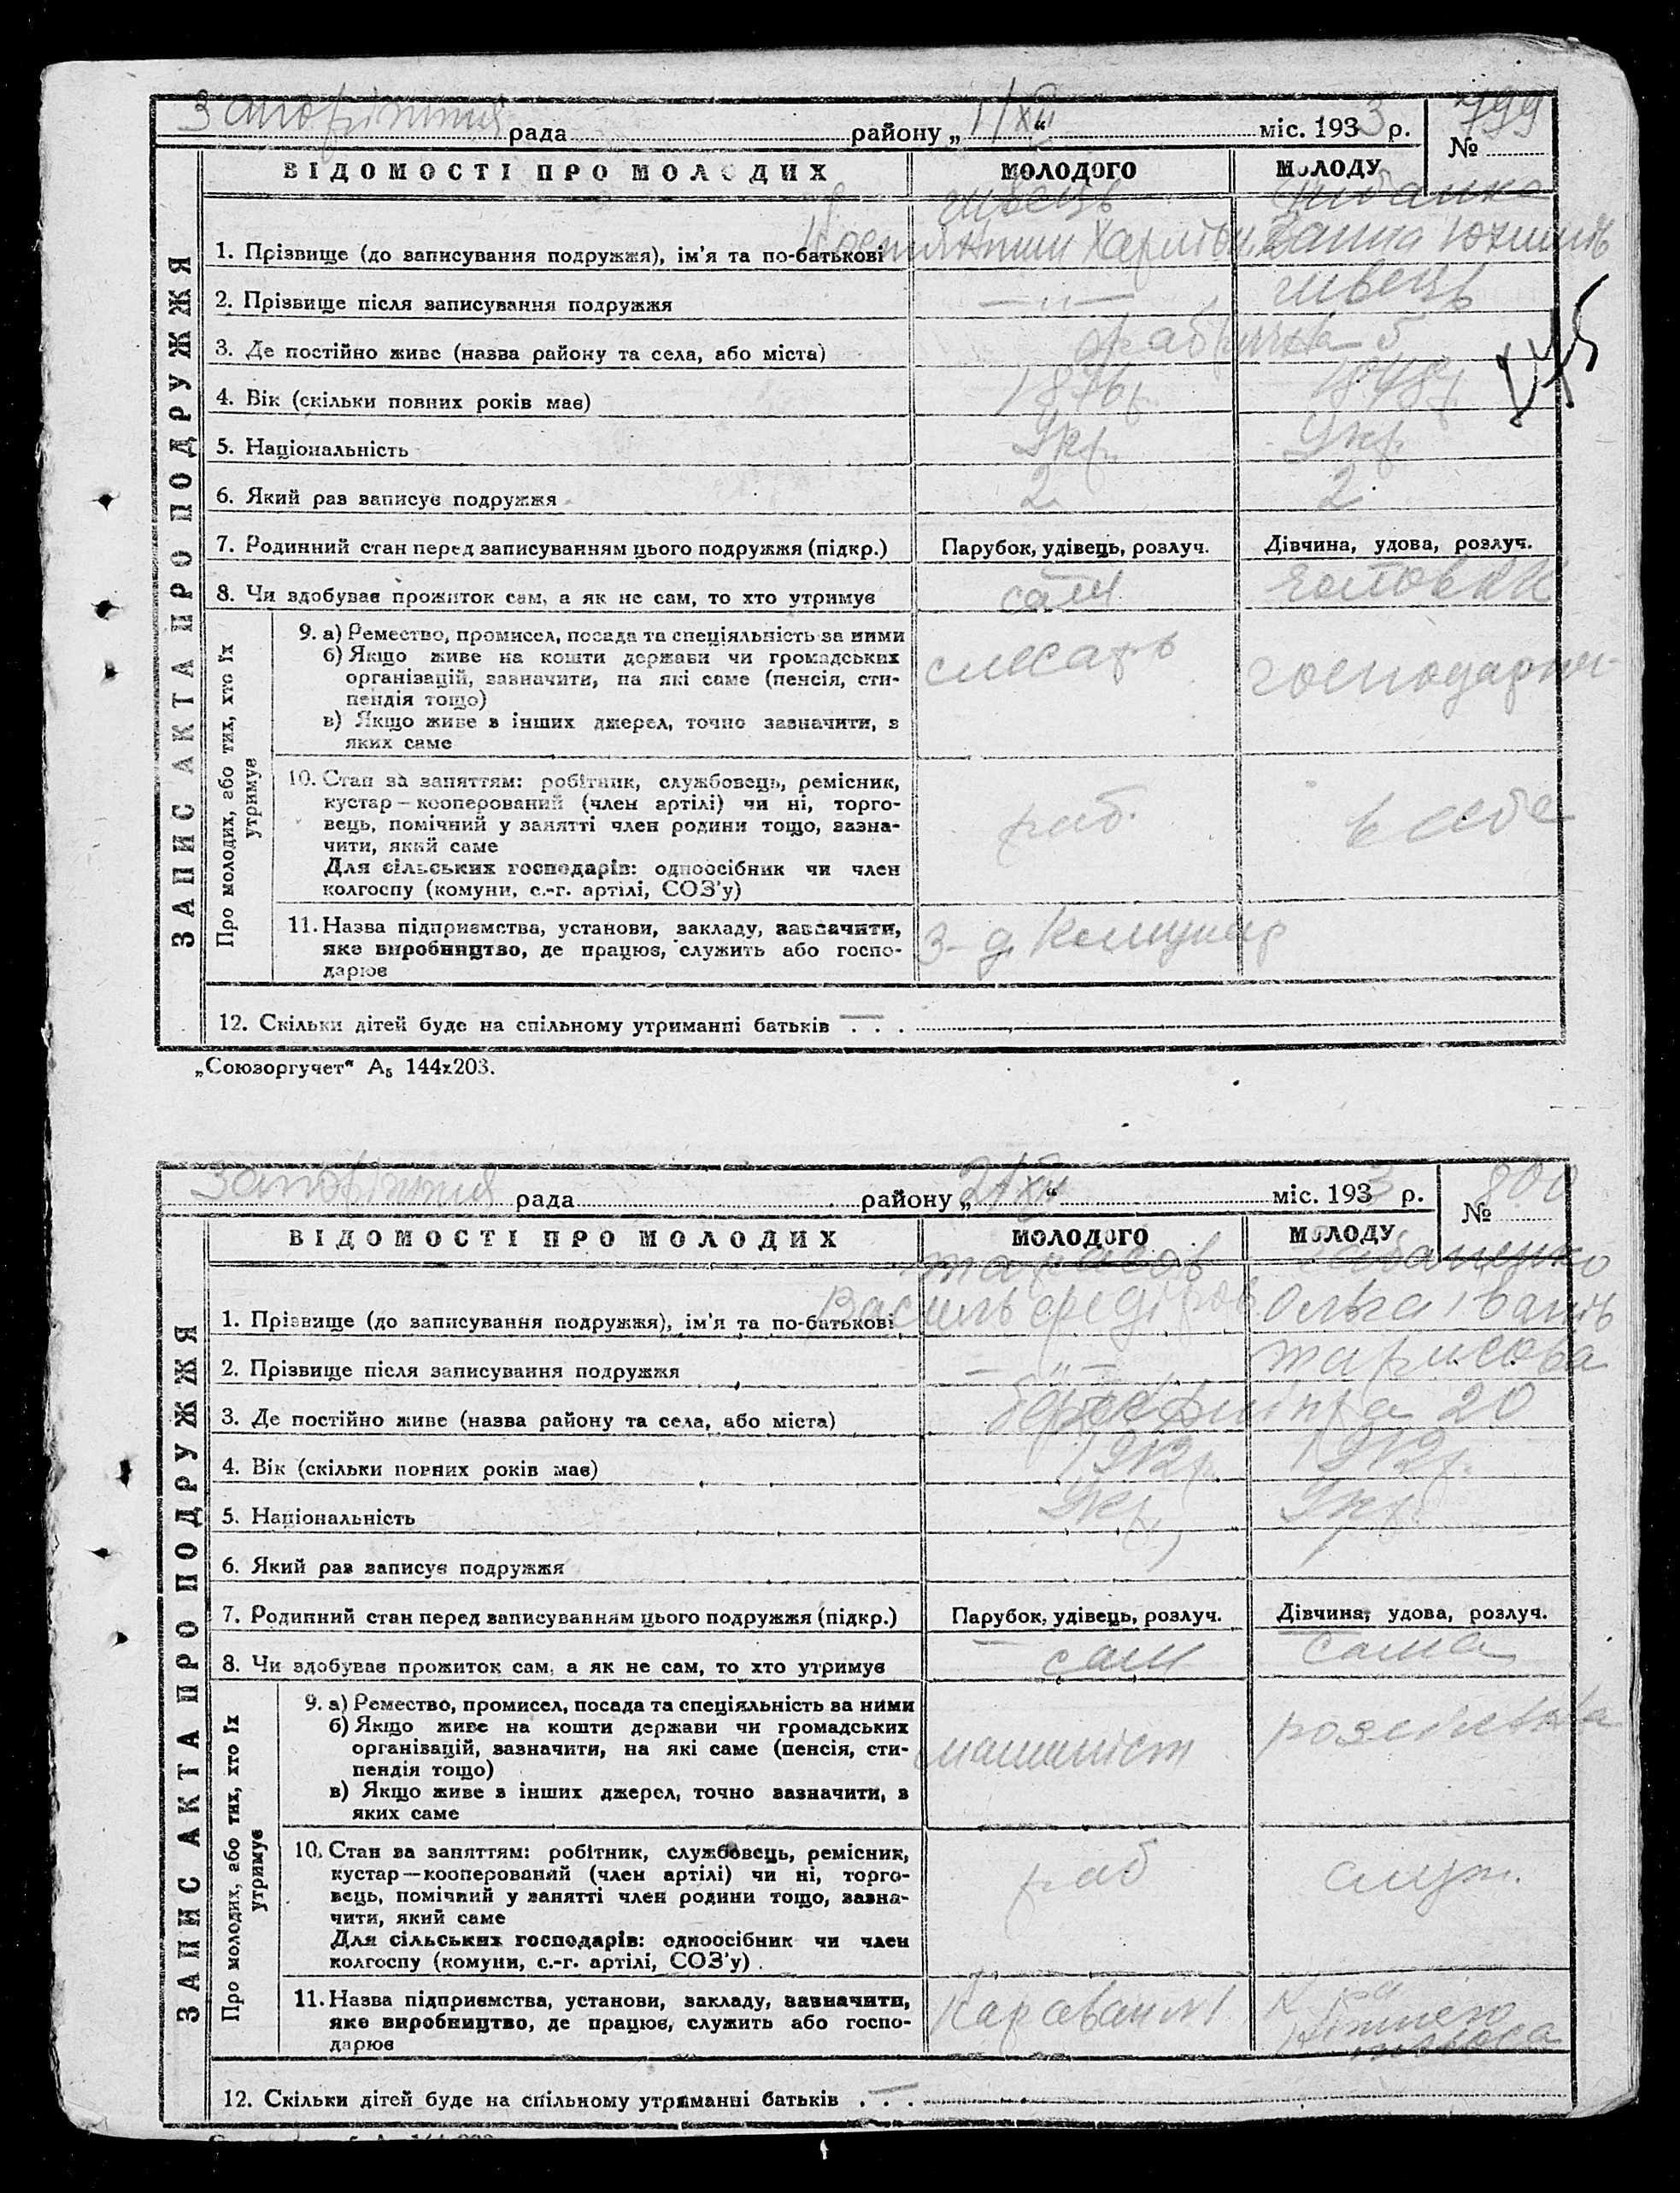 Запоріжжя рада району „1/XII“ міс. 1933 р. № 799
ВІДОМОСТІ ПРО МОЛОДИХ МОЛОДОГО МОЛОДУ
ЗАПИС АКТА ПРО ПОДРУЖЖЯ
швець
1. Прізвище (до записування подружжя), ім'я та по-батькові
2. Прізвище після записування подружжя — „ — швець
3. Де постійно живе (назва району та села, або міста) фабрична 5
4. Вік (скільки повних років має) 1876р.
5. Національність Укр. Укр.
6. Який раз записує подружжя 2 2
7. Родинний стан перед записуванням цього подружжя (підкр.) Парубок, удівець, розлуч. Дівчина, удова, розлуч.
8. Чи здобуває прожиток сам, а як не сам, то хто утримує сам чоловік
Про молодих, або тих, хто їх утримує
9. а) Ремество, промисел, посада та спеціяльність за ними
б) Якщо живе на кошти держави чи громадських
організацій, зазначити, на які саме (пенсія, сти-
пендія тощо)
в) Якщо живе з інших джерел, точно зазначити, з
яких саме
слюсарь
10. Стан за заняттям: робітник, службовець, ремісник,
кустар — кооперований (член артілі) чи ні, торго-
вець, помічний у занятті член родини тощо, зазна-
чити, який саме
Для сільських господарів: одноосібник чи член
колгоспу (комуни, с.-г. артілі, СОЗ'у)
раб. в себе
11. Назва підприємства, установи, закладу, зазначити,
яке виробництво, де працює, служить або госпо-
дарює
З-д Комунар
12. Скільки дітей буде на спільному утриманні батьків . . . —
„Союзоргучет“ А₅ 144х203.
Запоріжжя рада району „2/XII“ міс. 1933 р. № 800
ВІДОМОСТІ ПРО МОЛОДИХ МОЛОДОГО МОЛОДУ
ЗАПИС АКТА ПРО ПОДРУЖЖЯ
1. Прізвище (до записування подружжя), ім'я та по-батькові Василь Федіров Ольга Іванів
2. Прізвище після записування подружжя — „ — Тарисова
3. Де постійно живе (назва району та села, або міста) 20
4. Вік (скільки повних років має) 1912р. 1912р.
5. Національність Укр. Укр.
6. Який раз записує подружжя
7. Родинний стан перед записуванням цього подружжя (підкр.) Парубок, удівець, розлуч. Дівчина, удова, розлуч.
8. Чи здобуває прожиток сам, а як не сам, то хто утримує сам сама
Про молодих, або тих, хто їх утримує
9. а) Ремество, промисел, посада та спеціяльність за ними
б) Якщо живе на кошти держави чи громадських
організацій, зазначити, на які саме (пенсія, сти-
пендія тощо)
в) Якщо живе з інших джерел, точно зазначити, з
яких саме
машиніст
10. Стан за заняттям: робітник, службовець, ремісник,
кустар — кооперований (член артілі) чи ні, торго-
вець, помічний у занятті член родини тощо, зазна-
чити, який саме
Для сільських господарів: одноосібник чи член
колгоспу (комуни, с.-г. артілі, СОЗ'у)
раб служ.
11. Назва підприємства, установи, закладу, зазначити,
яке виробництво, де працює, служить або госпо-
дарює
Караван №1
12. Скільки дітей буде на спільному утриманні батьків . . . —